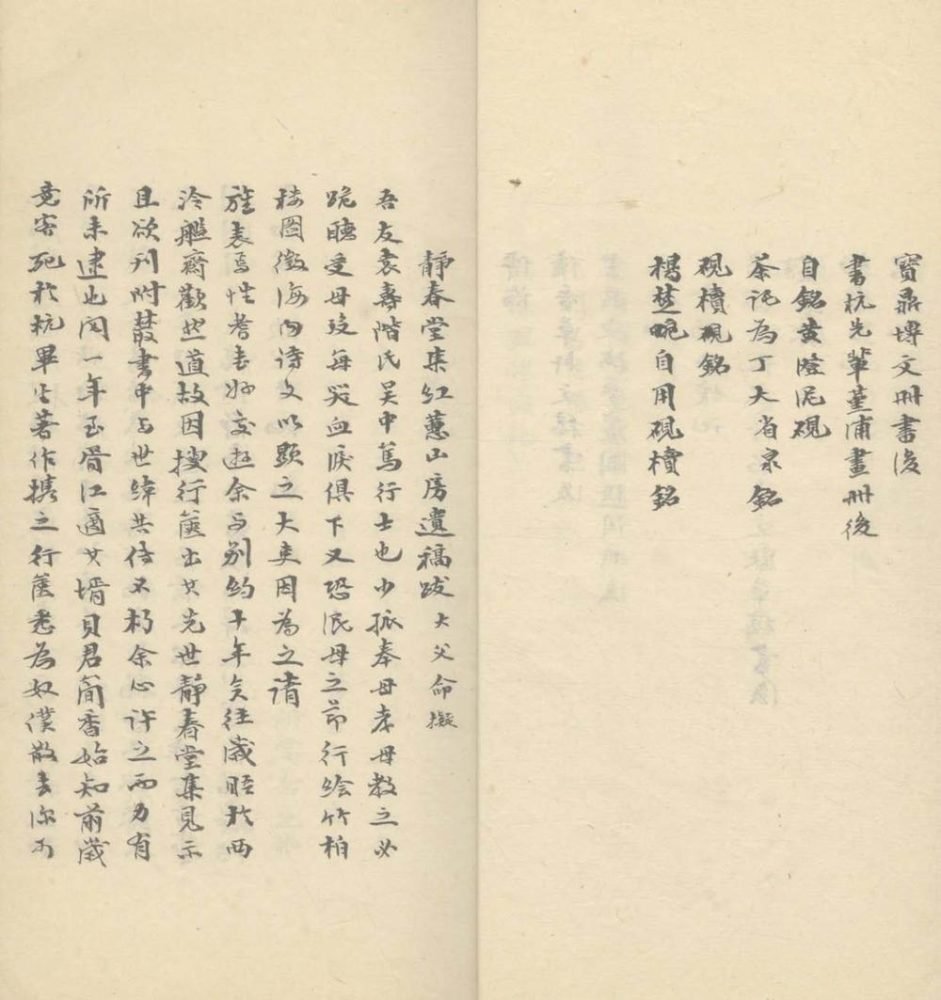 寶鼎博文冊書後
書杭先輩堇浦畫冊後
自銘黃澄泥硯
茶託為丁大省泉銘
硯櫝硯銘
楊楚睨自用硯櫝銘
靜春堂集紅蕙山房遺稿跋 大父命擬
吾友袁壽階氏吳中篤行士也少孤奉母孝母教之必
跪聽受母歿每哭血淚俱下又恐泯母之節行繪竹柏
樓圖徵海內詩文以顯之大吏因為之請
旌表焉性耆書好交遊余与別約十年矣往歲晤於西
泠艤齋歡然道故因搜行篋出其先世靜春堂集見示
且欲刊附叢書中与世緯共傳不朽余心許之而力有
所未逮也閱一年至胥江適其壻貝君簡香始知前歲
竟客死於杭畢生著作攜之行篋悉為奴僕散去